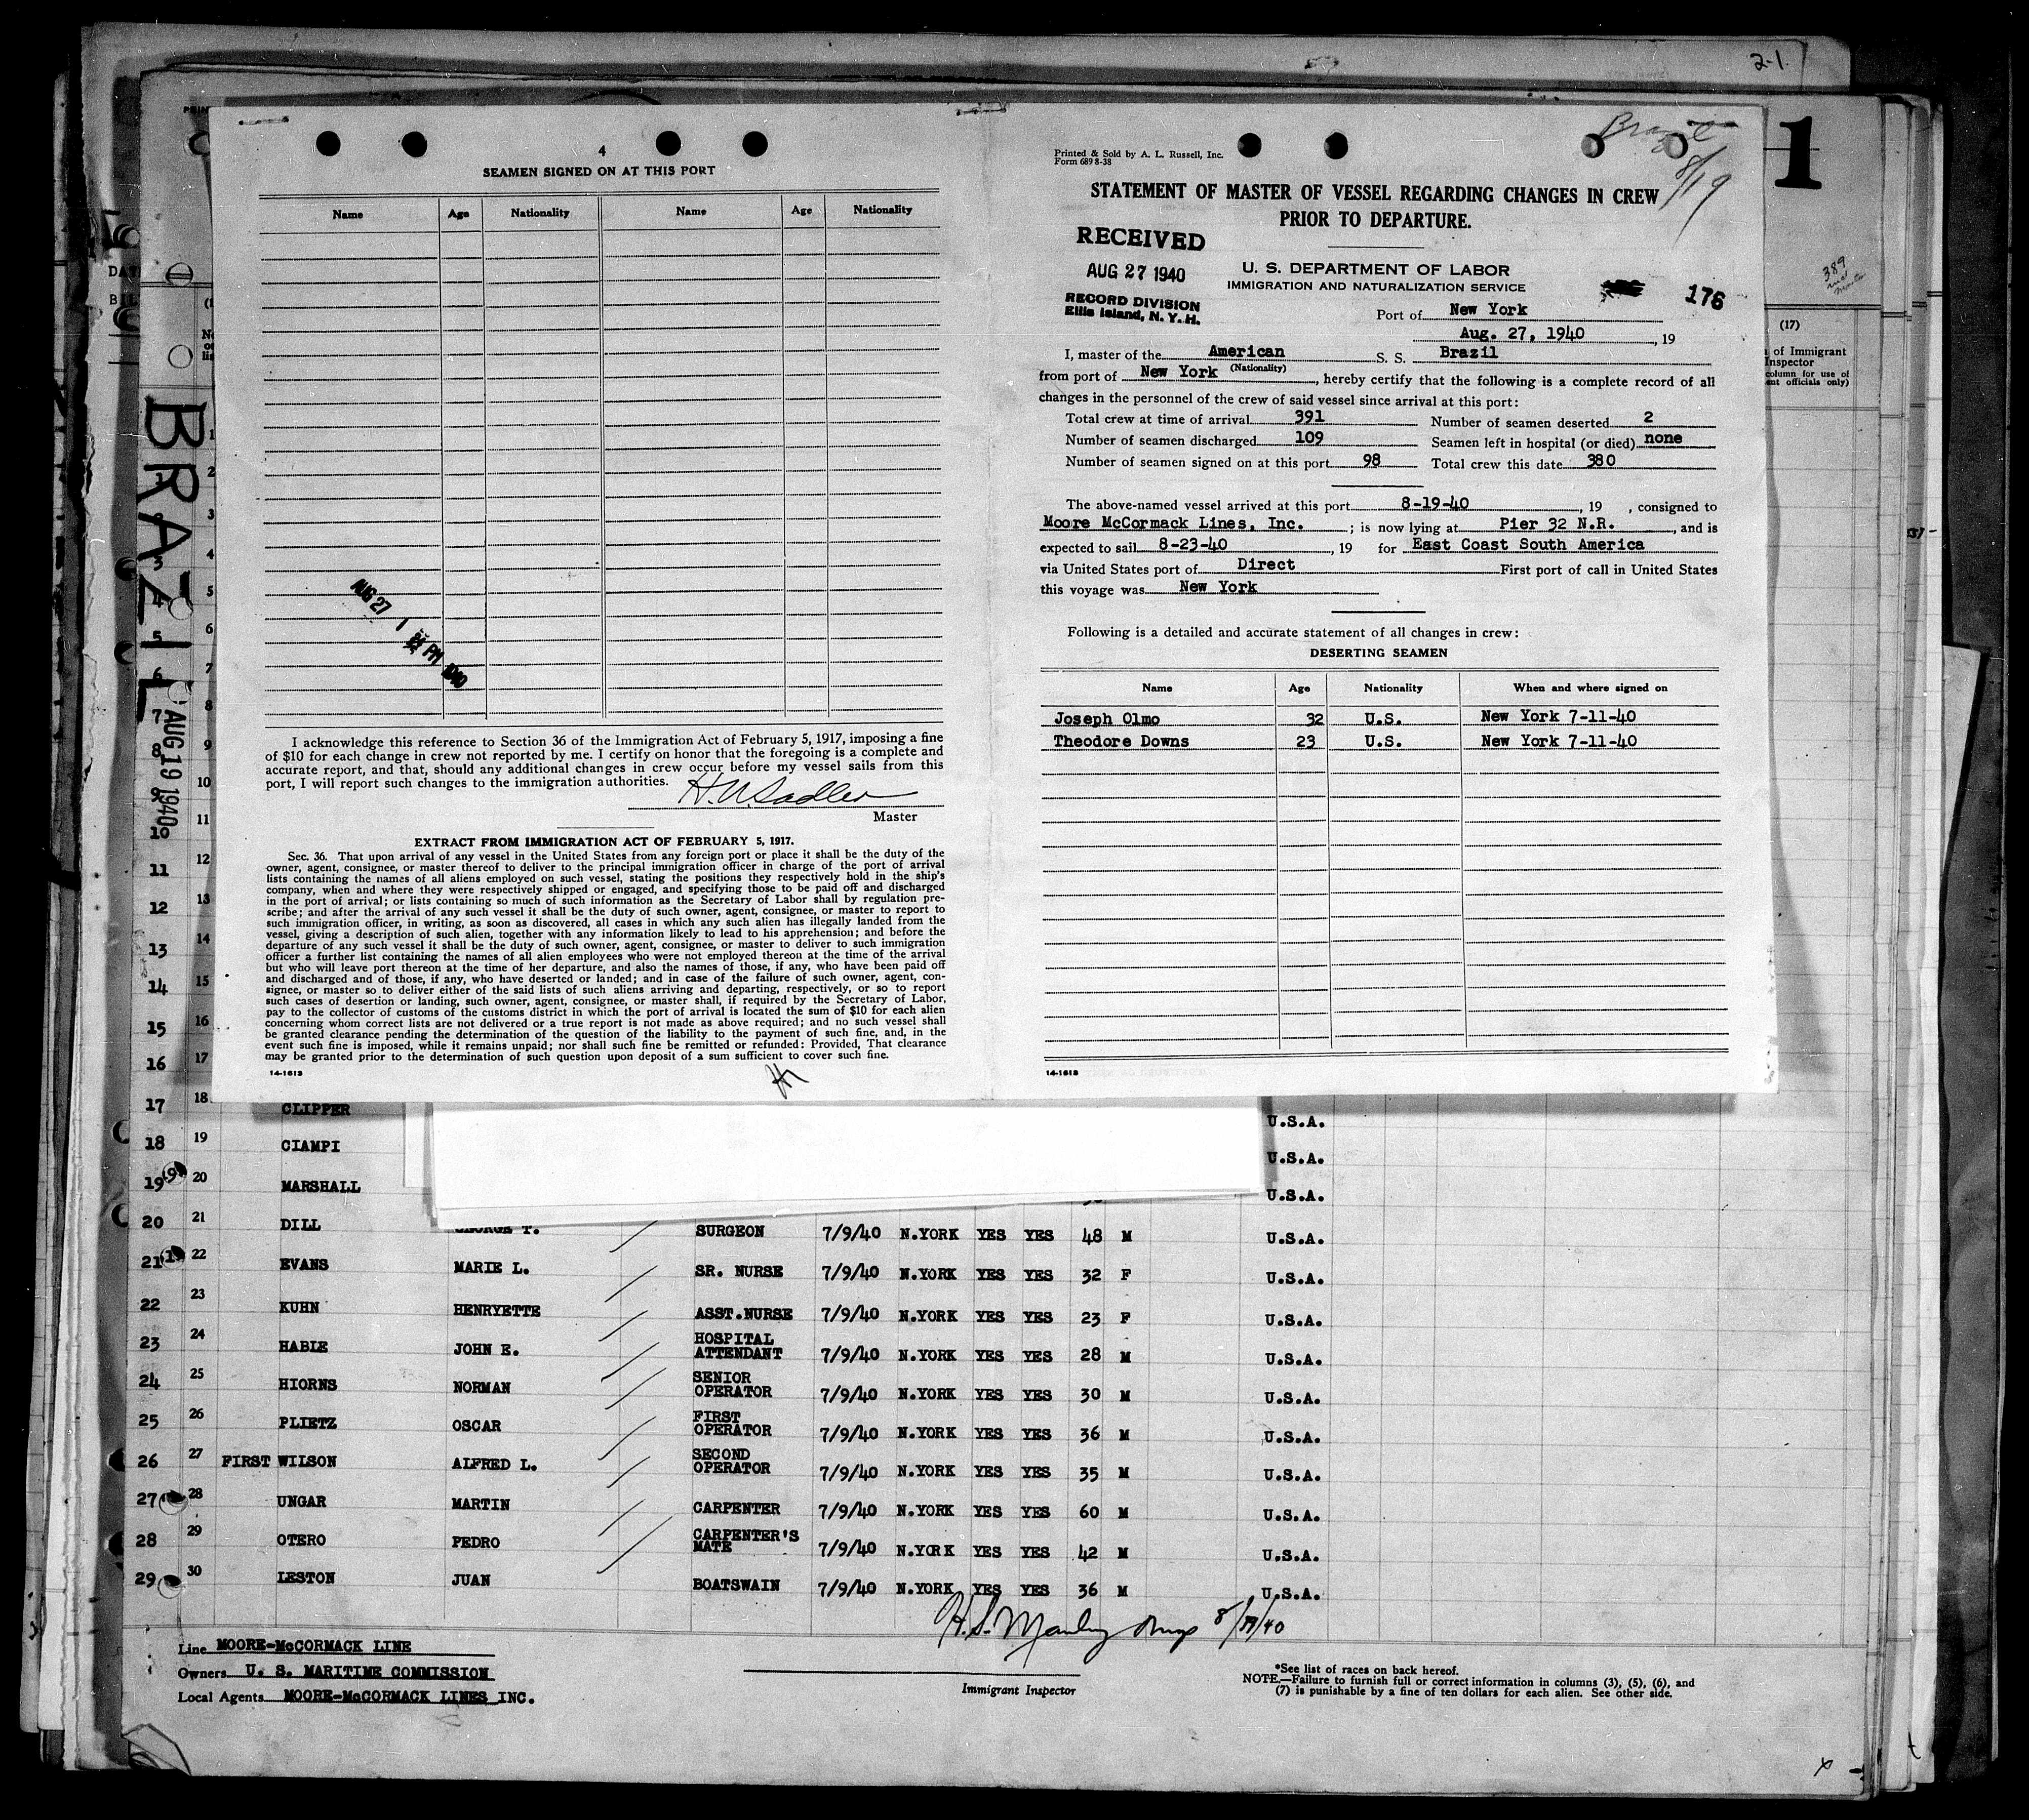 2-1
1
Brazil
8/19
4
SEAMEN SIGNED ON AT THIS PORT
Name Age Nationality Name Age Nationality
AUG 27 1 PM 1940
I acknowledge this reference to Section 36 of the Immigration Act of February 5, 1917, imposing a fine
of $10 for each change in crew not reported by me. I certify on honor that the foregoing is a complete and
accurate report, and that, should any additional changes in crew occur before my vessel sails from this
port, I will report such changes to the immigration authorities.
H. N. Sadler
Master
EXTRACT FROM IMMIGRATION ACT OF FEBRUARY 5, 1917.
Sec. 36. That upon arrival of any vessel in the United States from any foreign port or place it shall be the duty of the
owner, agent, consignee, or master thereof to deliver to the principal immigration officer in charge of the port of arrival
lists containing the names of all aliens employed on such vessel, stating the positions they respectively hold in the ship's
company, when and where they were respectively shipped or engaged, and specifying those to be paid off and discharged
in the port of arrival; or lists containing so much of such information as the Secretary of Labor shall by regulation pre-
scribe; and after the arrival of any such vessel it shall be the duty of such owner, agent, consignee, or master to report to
such immigration officer, in writing, as soon as discovered, all cases in which any such alien has illegally landed from the
vessel, giving a description of such alien, together with any information likely to lead to his apprehension; and before the
departure of any such vessel it shall be the duty of such owner, agent, consignee, or master to deliver to such immigration
officer a further list containing the names of all alien employees who were not employed thereon at the time of the arrival
but who will leave port thereon at the time of her departure, and also the names of those, if any, who have been paid off
and discharged and of those, if any, who have deserted or landed; and in case of the failure of such owner, agent, con-
signee, or master so to deliver either of the said lists of such aliens arriving and departing, respectively, or so to report
such cases of desertion or landing, such owner, agent, consignee, or master shall, if required by the Secretary of Labor,
pay to the collector of customs of the customs district in which the port of arrival is located the sum of $10 for each alien
concerning whom correct lists are not delivered or a true report is not made as above required; and no such vessel shall
be granted clearance pending the determination of the question of the liability to the payment of such fine, and, in the
event such fine is imposed, while it remains unpaid; nor shall such fine be remitted or refunded: Provided, That clearance
may be granted prior to the determination of such question upon deposit of a sum sufficient to cover such fine.
14-1613
Printed & Sold by A. L. Russell, Inc.
Form 689 8-38
STATEMENT OF MASTER OF VESSEL REGARDING CHANGES IN CREW
PRIOR TO DEPARTURE.
RECEIVED
AUG 27 1940
RECORD DIVISION
Ellis Island, N. Y. H.
U. S. DEPARTMENT OF LABOR
IMMIGRATION AND NATURALIZATION SERVICE
176
Port of New York
Aug. 27, 1940, 19
I, master of the American S. S. Brazil
(Nationality)
from port of New York, hereby certify that the following is a complete record of all
changes in the personnel of the crew of said vessel since arrival at this port:
Total crew at time of arrival 391 Number of seamen deserted 2
Number of seamen discharged 109 Seamen left in hospital (or died) none
Number of seamen signed on at this port 98 Total crew this date 380
The above-named vessel arrived at this port 8-19-40, 19 , consigned to
Moore McCormack Lines, Inc. ; is now lying at Pier 32 N.R., and is
expected to sail 8-23-40, 19 for East Coast South America
via United States port of Direct First port of call in United States
this voyage was New York
Following is a detailed and accurate statement of all changes in crew:
DESERTING SEAMEN
Name Age Nationality When and where signed on
Joseph Olmo 32 U.S. New York 7-11-40
Theodore Downs 23 U.S. New York 7-11-40
14-1613
389
(17)
of Immigrant
Inspector
column for use of
ent officials only)
BRAZIL
AUG 19 1940
17 18 CLIPPER U.S.A.
18 19 CIAMPI U.S.A.
19 20 MARSHALL U.S.A.
20 21 DILL GEORGE T. SURGEON 7/9/40 N.YORK YES YES 48 M U.S.A.
21 22 EVANS MARIE L. SR. NURSE 7/9/40 N.YORK YES YES 32 F U.S.A.
22 23 KUHN HENRYETTE ASST.NURSE 7/9/40 N.YORK YES YES 23 F U.S.A.
23 24 HABLE JOHN E. HOSPITAL ATTENDANT 7/9/40 N.YORK YES YES 28 M U.S.A.
24 25 HIORNS NORMAN SENIOR OPERATOR 7/9/40 N.YORK YES YES 30 M U.S.A.
25 26 PLIETZ OSCAR FIRST OPERATOR 7/9/40 N.YORK YES YES 36 M U.S.A.
26 27 FIRST WILSON ALFRED L. SECOND OPERATOR 7/9/40 N.YORK YES YES 35 M U.S.A.
27 28 UNGAR MARTIN CARPENTER 7/9/40 N.YORK YES YES 60 M U.S.A.
28 29 OTERO PEDRO CARPENTER'S MATE 7/9/40 N.YORK YES YES 42 M U.S.A.
29 30 LESTON JUAN BOATSWAIN 7/9/40 N.YORK YES YES 36 M U.S.A.
8/19/40
Line MOORE-McCORMACK LINE
Owners U. S. MARITIME COMMISSION
Local Agents MOORE-McCORMACK LINES INC.
Immigrant Inspector
*See list of races on back hereof.
NOTE.—Failure to furnish full or correct information in columns (3), (5), (6), and
(7) is punishable by a fine of ten dollars for each alien. See other side.